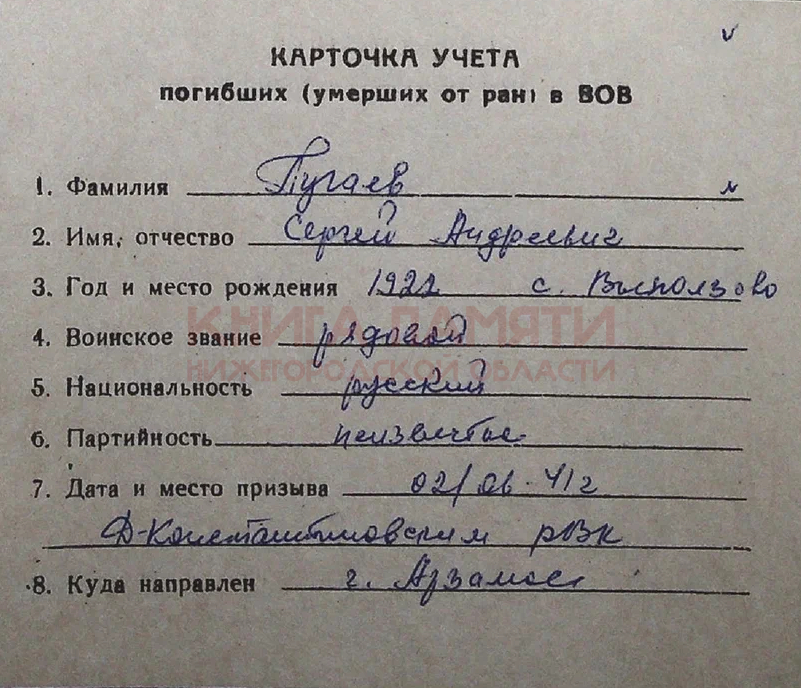 КАРТОЧКА УЧЕТА
погибших (умерших от ран) в ВОВ
1. Фамилия Пугаев
2. Имя, отчество Сергей Андреевич
3. Год и место рождения 1922 с. Выползово
КНИГА ПАМЯТИ
4. Воинское звание рядовой
НИЖЕГОРОДСКОЙ ОБЛАСТИ
5. Национальность русский
6. Партийность
7. Дата и место призыва 02/06.41г
Д-Константиновским РВК
8. Куда направлен г. Арзамас